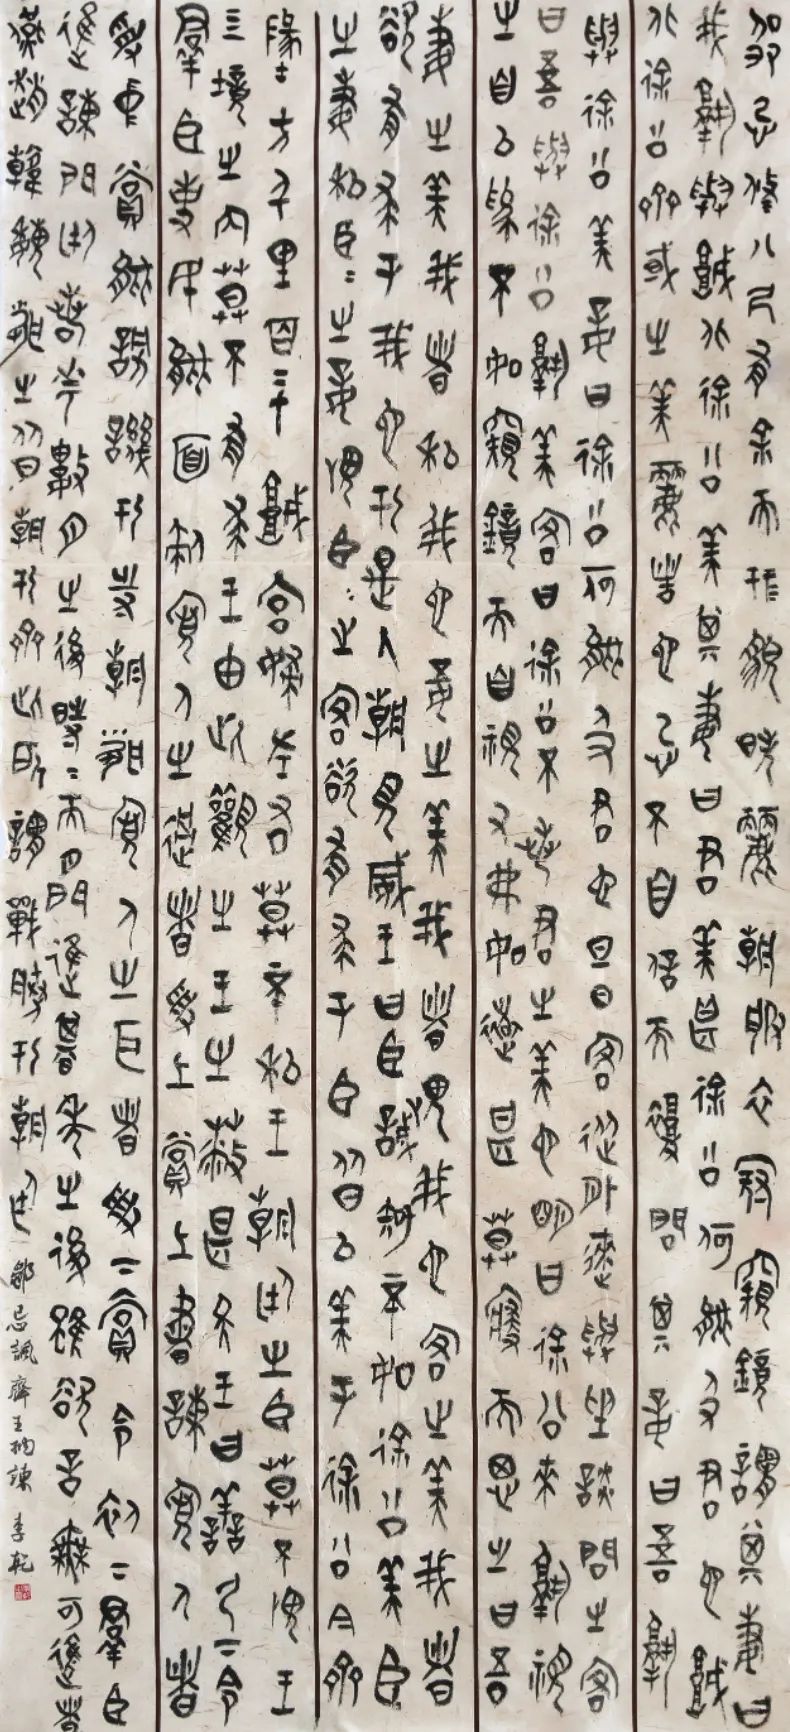 鄒忌修八尺有余而形貌昳麗朝服衣冠窺鏡謂其妻曰
我孰與城北徐公美其妻曰君美甚徐公何能及君也城
北徐公齊國之美麗者也忌不自信而復問其妾曰吾孰
與徐公美妾曰徐公何能及君也旦日客從外來與坐談問之客
曰吾與徐公孰美客曰徐公不若君之美也明日徐公來孰視
之自以為不如窺鏡而自視又弗如遠甚莫寢而思之曰吾
妻之美我者私我也妾之美我者畏我也客之美我者
欲有求于我也於是入朝見威王曰臣誠知不如徐公美臣
之妻私臣〻之妾畏臣〻之客欲有求于臣皆以美于徐公今齊
地方千里百二十城宮婦左右莫不私王朝廷之臣莫不畏王
四境之內莫不有求王由此觀之王之蔽甚矣王曰善乃下令
群臣吏民能面刺寡人之過者受上賞上書諫寡人者
受中賞能謗譏於市朝聞寡人之耳者受下賞令初下群臣
進諫門廷若市數月之後時〻而間進期年之後雖欲言無可進者
燕趙韓魏聞之皆朝於齊此所謂戰勝於朝廷
鄒忌諷齊王納諫 李乾